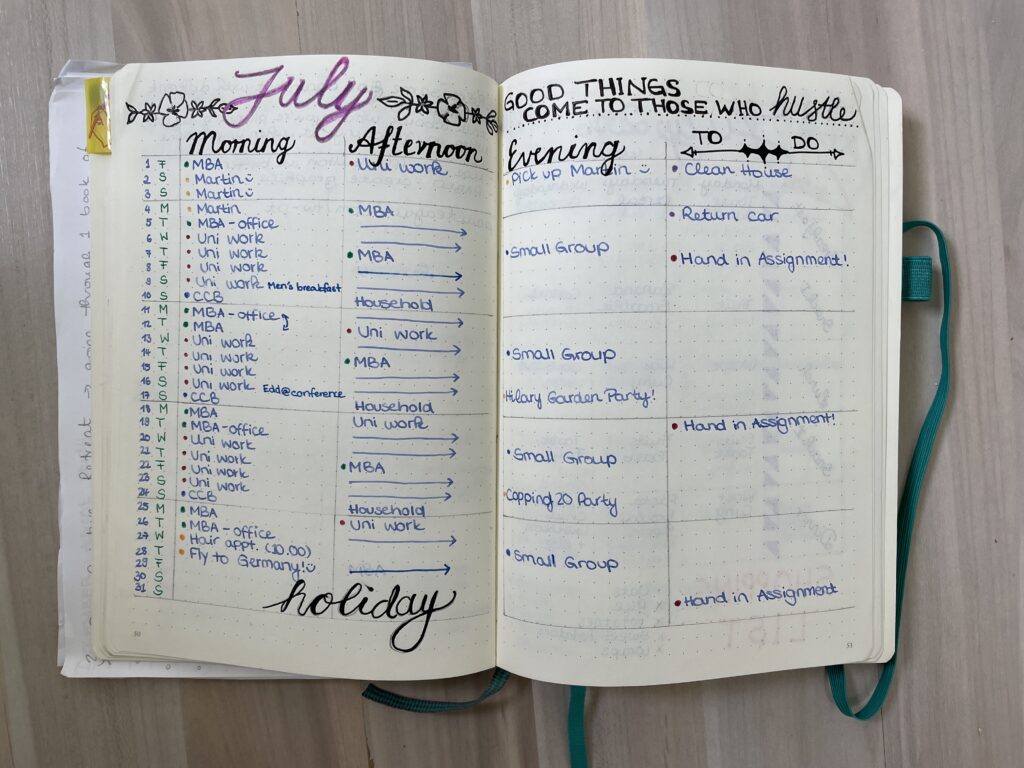 July
Morning Afternoon
1 F MBA Uni work
2 S Martin
3 S Martin
4 M Martin MBA
5 T MBA-office
6 W Uni work
7 T Uni work MBA
8 F Uni work
9 S Uni work Men's breakfast
10 S CCB Household
11 M MBA-office
12 T MBA Uni work
13 W Uni work
14 T Uni work MBA
15 F Uni work
16 S Uni work Edd@conference
17 S CCB Household
18 M MBA Uni work
19 T MBA-office
20 W Uni work
21 T Uni work MBA
22 F Uni work
23 S Uni work
24 S CCB Household
25 M MBA Uni work
26 T MBA-office
27 W Hair appt. (10.00)
28 T Fly to Germany! MBA
29 F
30 S
31 S
holiday
50
GOOD THINGS
COME TO THOSE WHO hustle
Evening TO DO
Pick up Martin Clean House
Return car
Small Group Hand in Assignment!
Small Group
Hilary Garden Party!
Hand in Assignment!
Small Group
Copping 20 Party
Small Group
Hand in Assignment
51